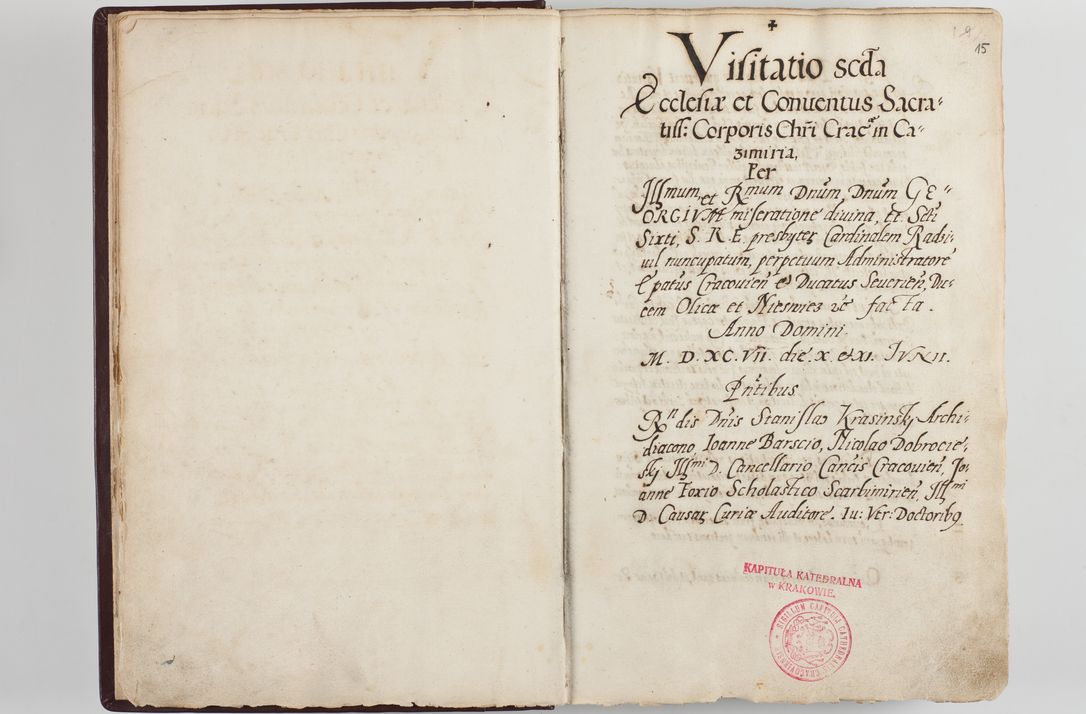 19
15
Visitatio scda
Ecclesiæ et Conuentus Sacra-
tiss: Corporis Chri Craꝏ in Ca-
zimiria,
Per
Illmum, et Rmum Dnum, Dnum GE-
ORGIVM miseratione diuina, tt. Scti
Sixti, S. R. E. presbyter Cardinalem Radzi-
uil nuncupatum, perpetuum Administratore
Epatus Cracouien et Ducatus Seuerien, Du-
cem Olicæ et Niesuiez facta.
Anno Domini.
M. D. XC. VII. die. X. et XI. IVNII.
Pntibus
Rndis Dnis Stanislao Krasinsky Archi-
diacono, Ioanne Barscio, Nicolao Dobrocie-
sky Illmi D. Cancellario Cancis Cracouien, Jo-
anne Foxio Scholastico Scarbimirien, Illmi
D. Causar Curiæ Auditore. Iu: Vtr: Doctoribꝫ
KAPITUŁA KATEDRALNA
w KRAKOWIE.
SIGILLUM CAPITULI CATHEDRALIS CRACOVIENSIS